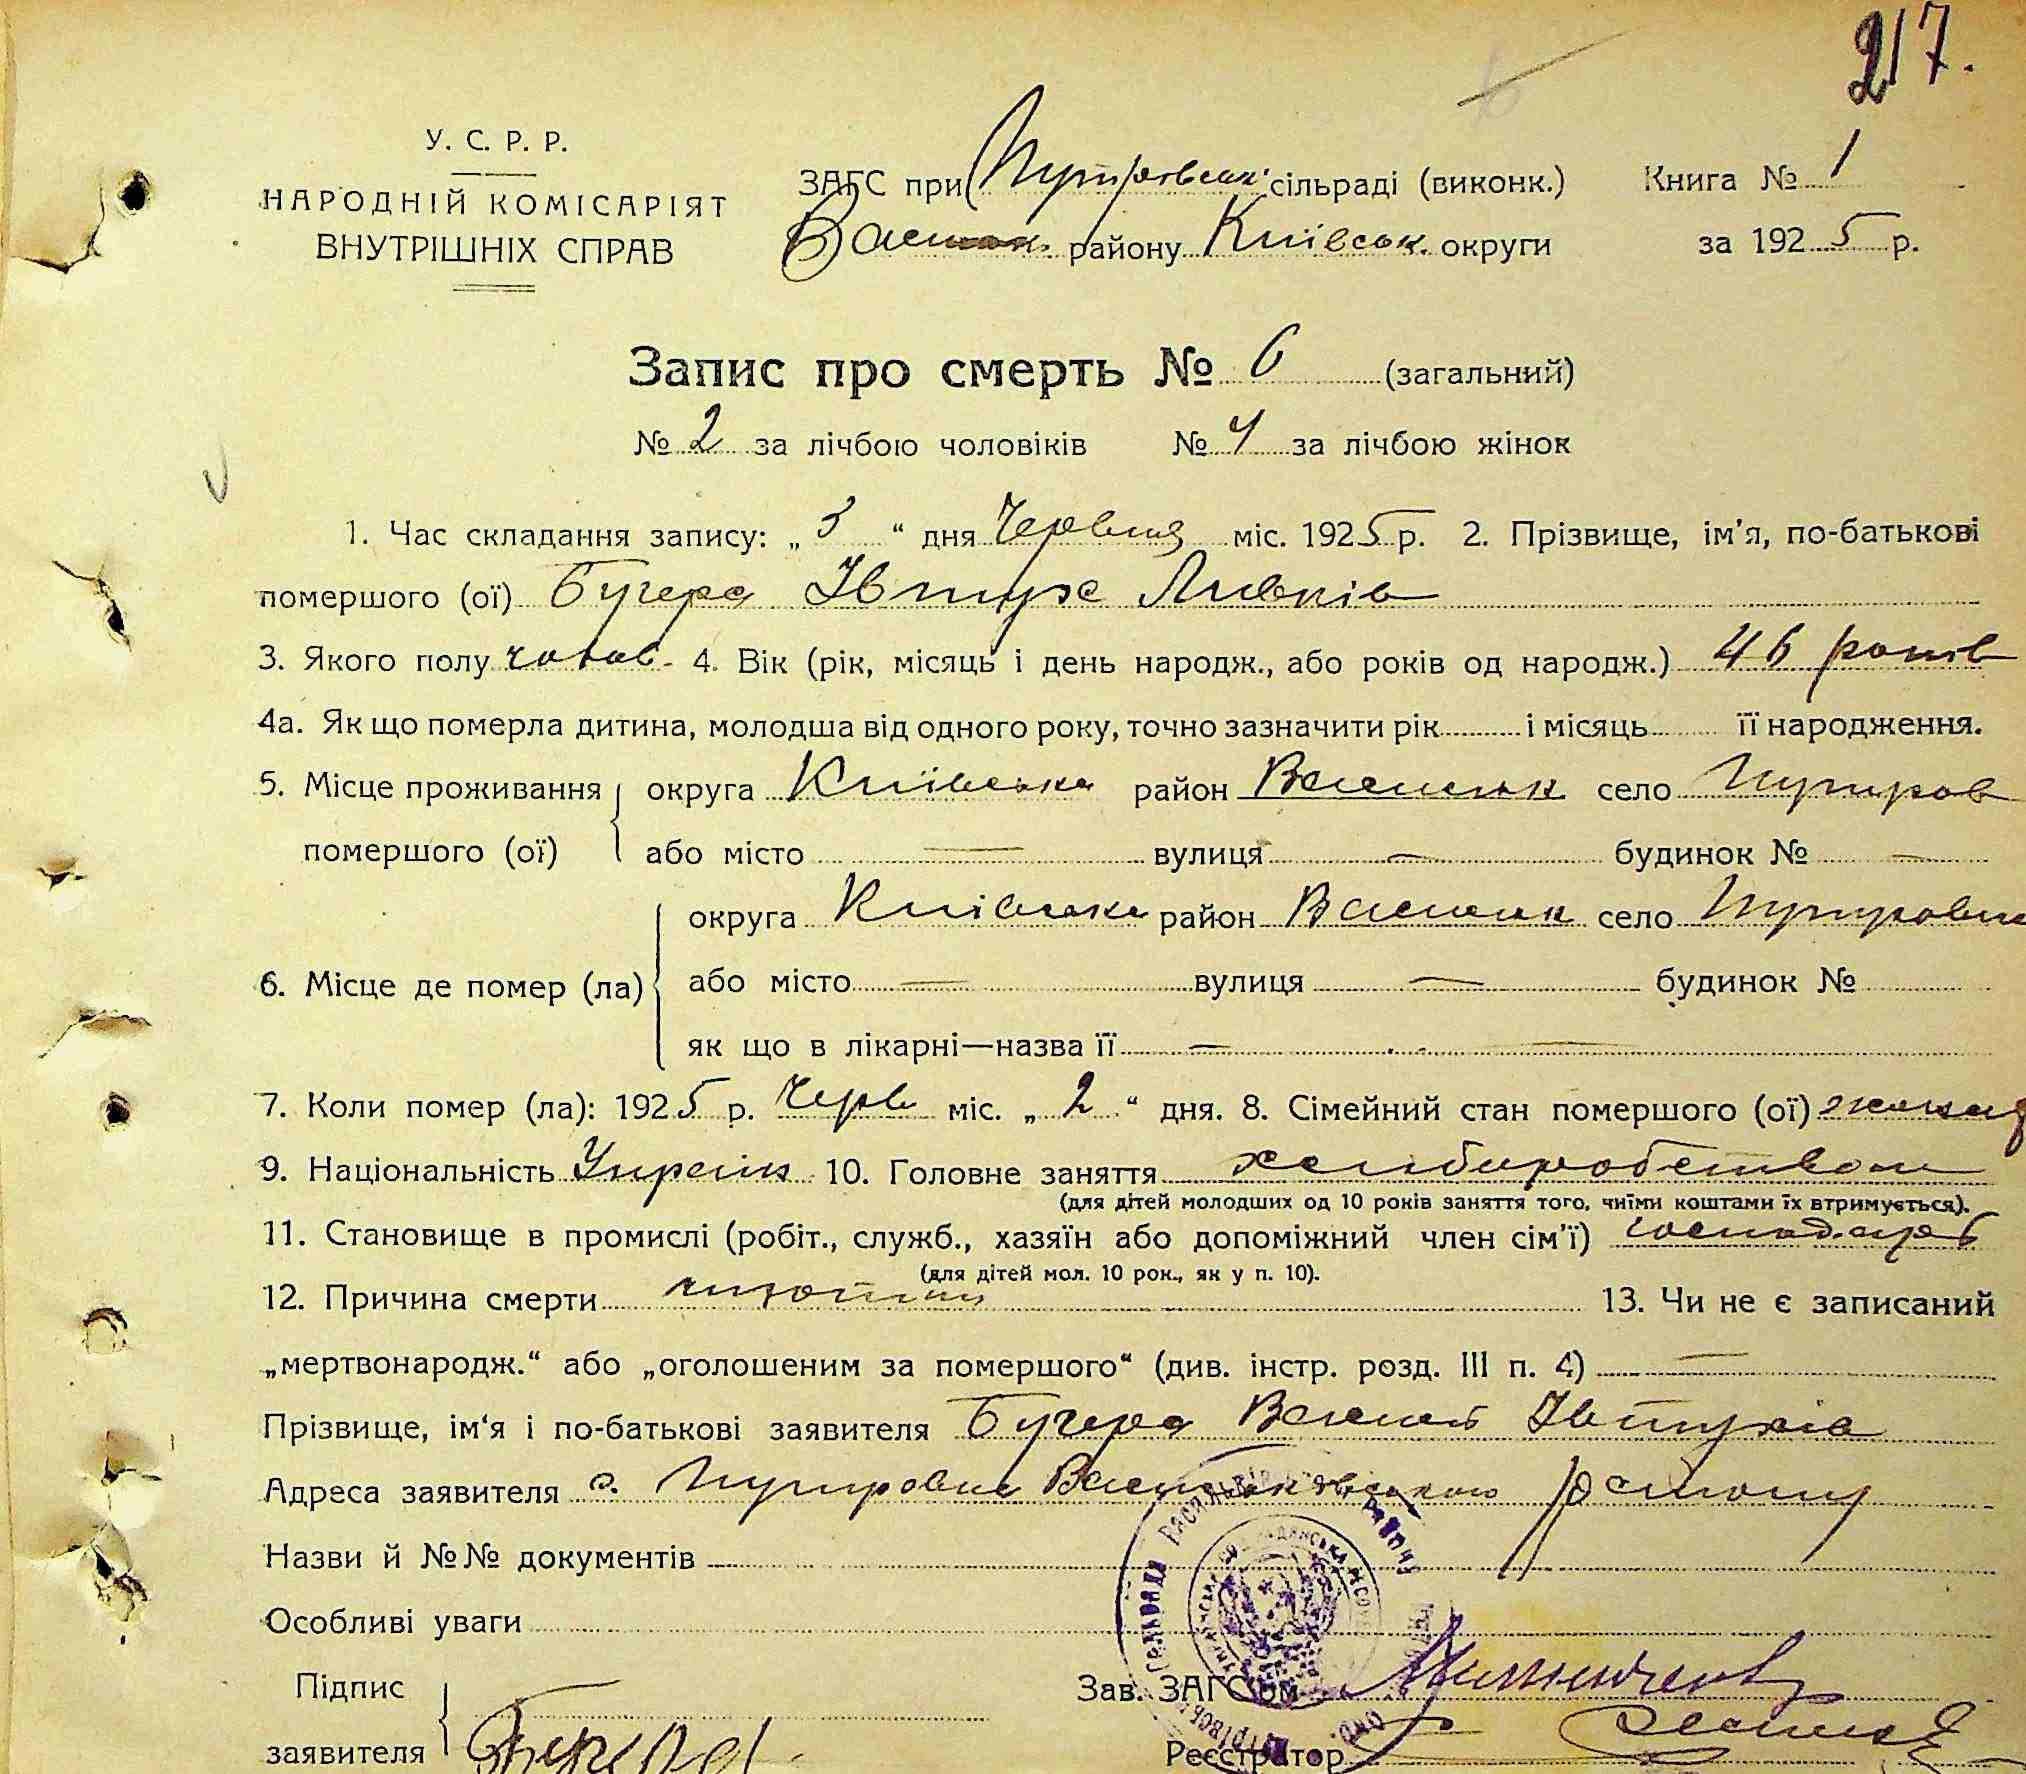 217.
У. С. Р. Р.
НАРОДНІЙ КОМІСАРІЯТ
ВНУТРІШНІХ СПРАВ
ЗАГС при Путровськ. сільраді (виконк.) Книга № 1
Васильк. району Київськ. округи за 1925 р.
Запис про смерть № 6 (загальний)
№ 2 за лічбою чоловіків № 4 за лічбою жінок
1. Час складання запису: „3“ дня Червня міс. 1925 р. 2. Прізвище, ім'я, по-батькові
помершого (ої) Бугера Івтух Ливків
3. Якого полу чолов. 4. Вік (рік, місяць і день народж., або років од народж.) 46 років
4а. Як що померла дитина, молодша від одного року, точно зазначити рік і місяць її народження.
5. Місце проживання округа Київська район Васильк село Путров
помершого (ої) або місто — вулиця — будинок № —
округа Київська район Васильк село Путровка
6. Місце де помер (ла) або місто — вулиця — будинок №
як що в лікарні—назва її —
7. Коли помер (ла): 1925 р. Черв міс. „2“ дня. 8. Сімейний стан помершого (ої)
9. Національність Україн 10. Головне заняття хлиборобством
(для дітей молодших од 10 років заняття того, чиїми коштами їх втримується).
11. Становище в промислі (робіт., служб., хазяїн або допоміжний член сім'ї) господарь
(для дітей мол. 10 рок., як у п. 10).
12. Причина смерти 13. Чи не є записаний
„мертвонародж.“ або „оголошеним за помершого“ (див. інстр. розд. III п. 4) —
Прізвище, ім'я і по-батькові заявителя Бугера Василь Івтухів
Адреса заявителя с. Путровка Васильківського району
Назви й №№ документів
Особливі уваги
Підпис
заявителя Бугера
Зав. ЗАГС'ом
Реєстратор